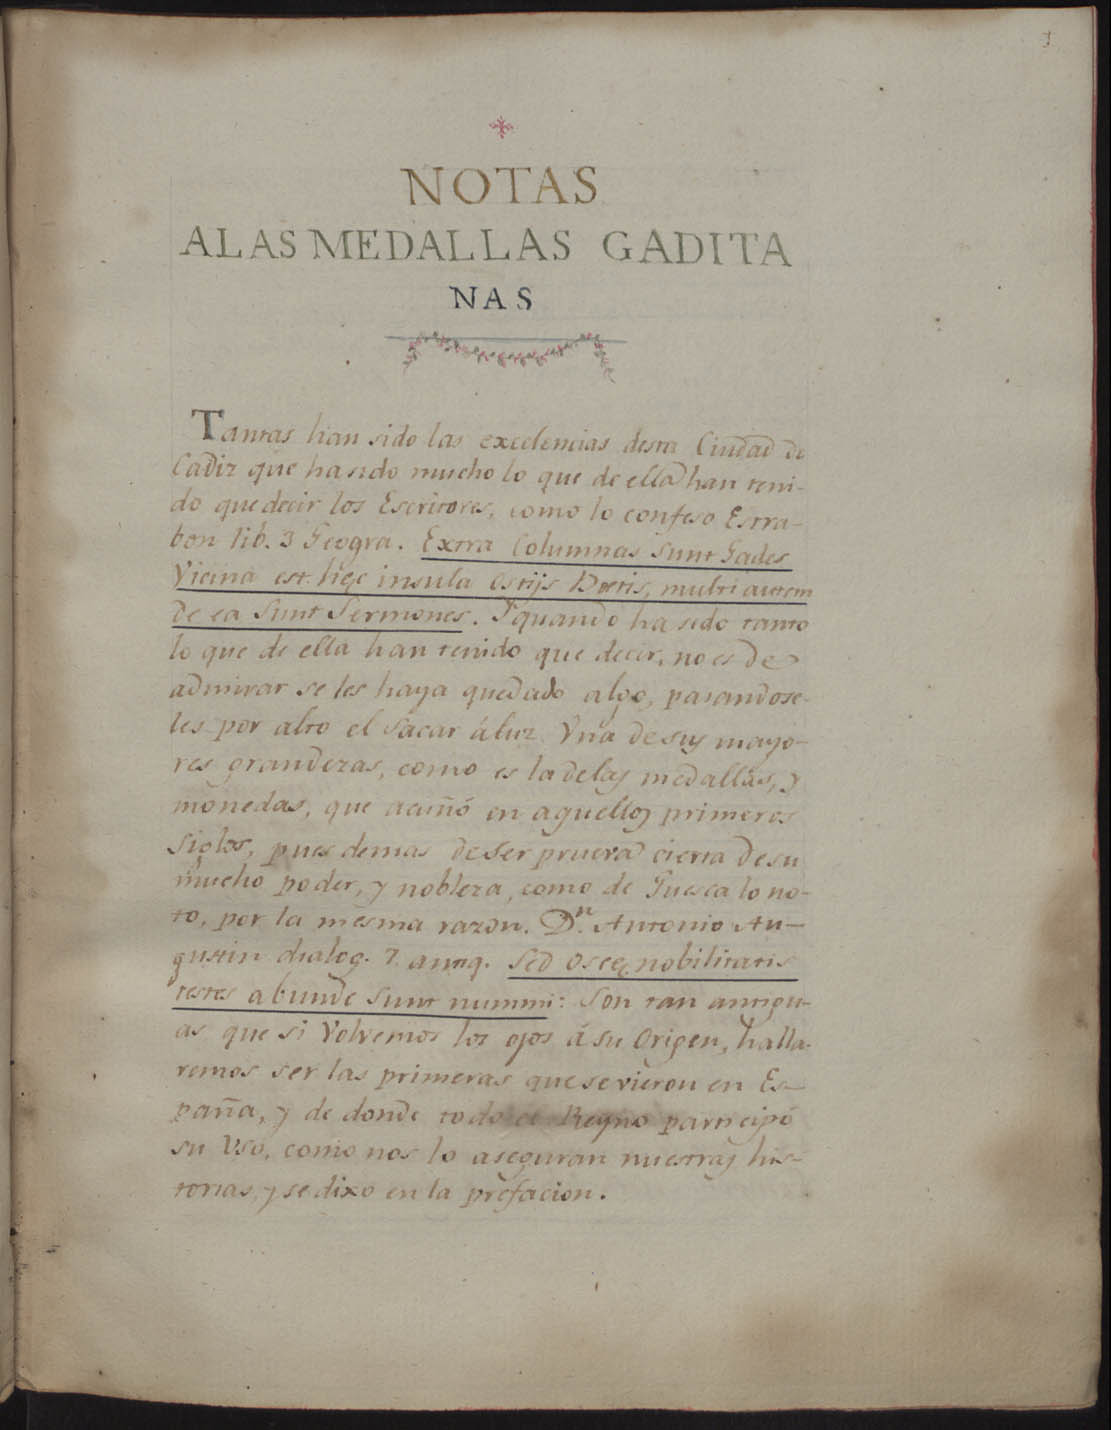 1
NOTAS
ALAS MEDALLAS GADITA
NAS
Tantas han sido las excelencias desta Ciudad de
Cadiz que ha sido mucho lo que de ella han teni-
do que decir los Escritores, como lo confeso Estra-
bon lib. 3 Geogra. Extra Columnas sunt Gades
Vicina est hęc insula ostijs Bœtis, multi autem
de ea sunt Sermones. Y quando ha sido tanto
lo que de ella han tenido que decir, no es de
admirar se les haya quedado algo, pasandose-
les por alto el sacar á luz Vna de sus mayo-
res grandezas, como es la de las medallas, y
monedas, que acuñó en aquellos primeros
siglos, pues demas de ser prueva cierta de su
mucho poder, y nobleza, como de Guesca lo no-
to, por la mesma razon. Dn. Antonio Au-
gustin dialog. 7. antiq. Sed Oscę nobilitatis
testes abunde sunt nummi: Son tan antigu-
as que si Volvemos los ojos á su Origen, halla-
remos ser las primeras que se vieron en Es-
paña, y de donde todo el Reyno participó
su Vso, como nos lo aseguran nuestras his-
torias, y se dixo en la prefacion.